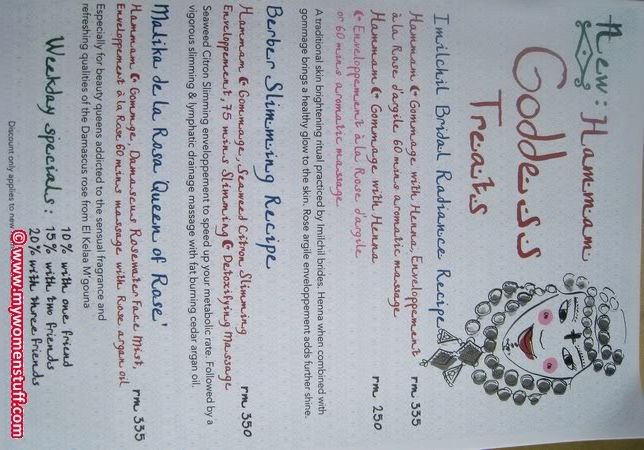 New: Hammam
Goddess
Treats
Imilchil Bridal Radiance Recipe
Hammam & Gommage with Henna, Enveloppement
à la Rose d'argile 60 mins aromatic massage
rm 335
Hammam & Gommage with Henna
rm 250
& Enveloppement à la Rose d'argile
or 60 mins aromatic massage
A traditional skin brightening ritual practiced by Imilchil brides. Henna when combined with
gommage brings a healthy glow to the skin. Rose argile enveloppement adds further shine.
Berber Slimming Recipe
Hammam & Gommage, Seaweed Citron Slimming
Enveloppement, 75 mins Slimming & Detoxifying Massage
rm 350
Seaweed Citron Slimming enveloppement to speed up your metabolic rate. Followed by a
vigorous slimming & lymphatic drainage massage with fat burning cedar argan oil.
Malika de la Rosa 'Queen of Rose'
Hammam & Gommage, Damascus Rosewater Face Mist,
Enveloppement à la Rose 60 mins massage with Rose argan oil
rm 335
Especially for beauty queens addicted to the sensual fragrance and
refreshing qualities of the Damascus rose from El Kelaa M'gouna
Weekday specials:
10% with one friend
15% with two friends
20% with three friends
Discount only applies to new
© www.mywomenstuff.com